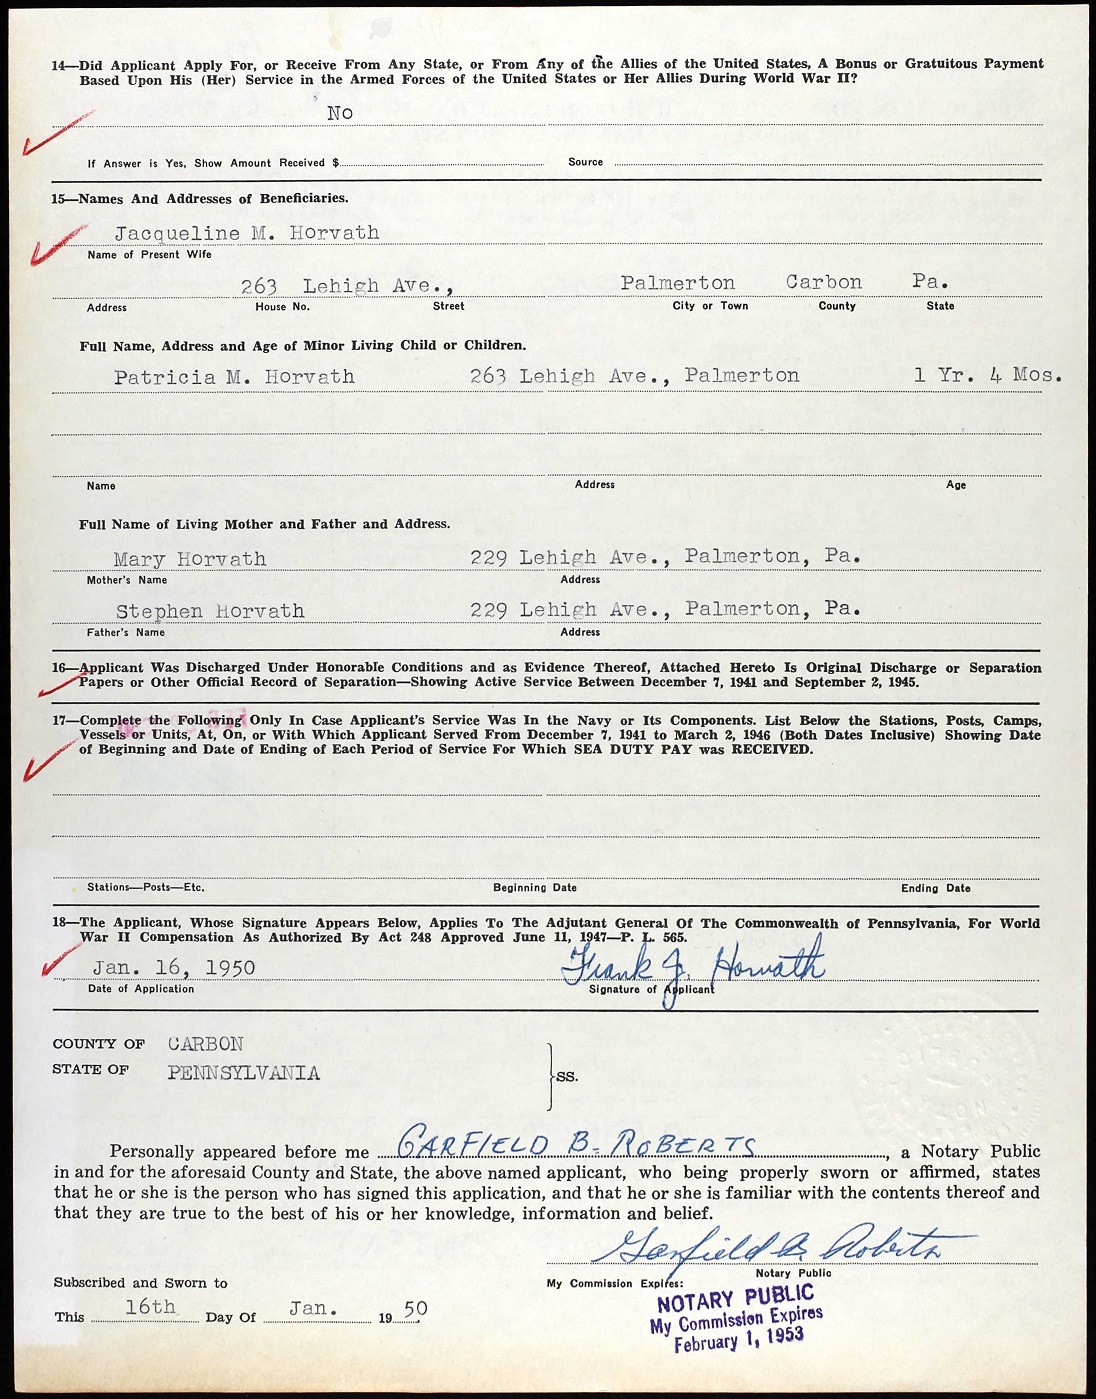 14—Did Applicant Apply For, or Receive From Any State, or From Any of the Allies of the United States, A Bonus or Gratuitous Payment
Based Upon His (Her) Service in the Armed Forces of the United States or Her Allies During World War II?
No
If Answer is Yes, Show Amount Received $ Source
15—Names And Addresses of Beneficiaries.
Jacqueline M. Horvath
Name of Present Wife
263 Lehigh Ave., Palmerton Carbon Pa.
Address House No. Street City or Town County State
Full Name, Address and Age of Minor Living Child or Children.
Patricia M. Horvath 263 Lehigh Ave., Palmerton 1 Yr. 4 Mos.
Name Address Age
Full Name of Living Mother and Father and Address.
Mary Horvath 229 Lehigh Ave., Palmerton, Pa.
Mother's Name Address
Stephen Horvath 229 Lehigh Ave., Palmerton, Pa.
Father's Name Address
16—Applicant Was Discharged Under Honorable Conditions and as Evidence Thereof, Attached Hereto Is Original Discharge or Separation
Papers or Other Official Record of Separation—Showing Active Service Between December 7, 1941 and September 2, 1945.
17—Complete the Following Only In Case Applicant's Service Was In the Navy or Its Components. List Below the Stations, Posts, Camps,
Vessels or Units, At, On, or With Which Applicant Served From December 7, 1941 to March 2, 1946 (Both Dates Inclusive) Showing Date
of Beginning and Date of Ending of Each Period of Service For Which SEA DUTY PAY was RECEIVED.
Stations—Posts—Etc. Beginning Date Ending Date
18—The Applicant, Whose Signature Appears Below, Applies To The Adjutant General Of The Commonwealth of Pennsylvania, For World
War II Compensation As Authorized By Act 248 Approved June 11, 1947—P. L. 565.
Jan. 16, 1950 Frank J. Horvath
Date of Application Signature of Applicant
COUNTY OF CARBON
STATE OF PENNSYLVANIA SS.
Personally appeared before me GARFIELD B. ROBERTS, a Notary Public
in and for the aforesaid County and State, the above named applicant, who being properly sworn or affirmed, states
that he or she is the person who has signed this application, and that he or she is familiar with the contents thereof and
that they are true to the best of his or her knowledge, information and belief.
Garfield B. Roberts
Notary Public
Subscribed and Sworn to My Commission Expires:
This 16th Day Of Jan. 19 50
NOTARY PUBLIC
My Commission Expires
February 1, 1953